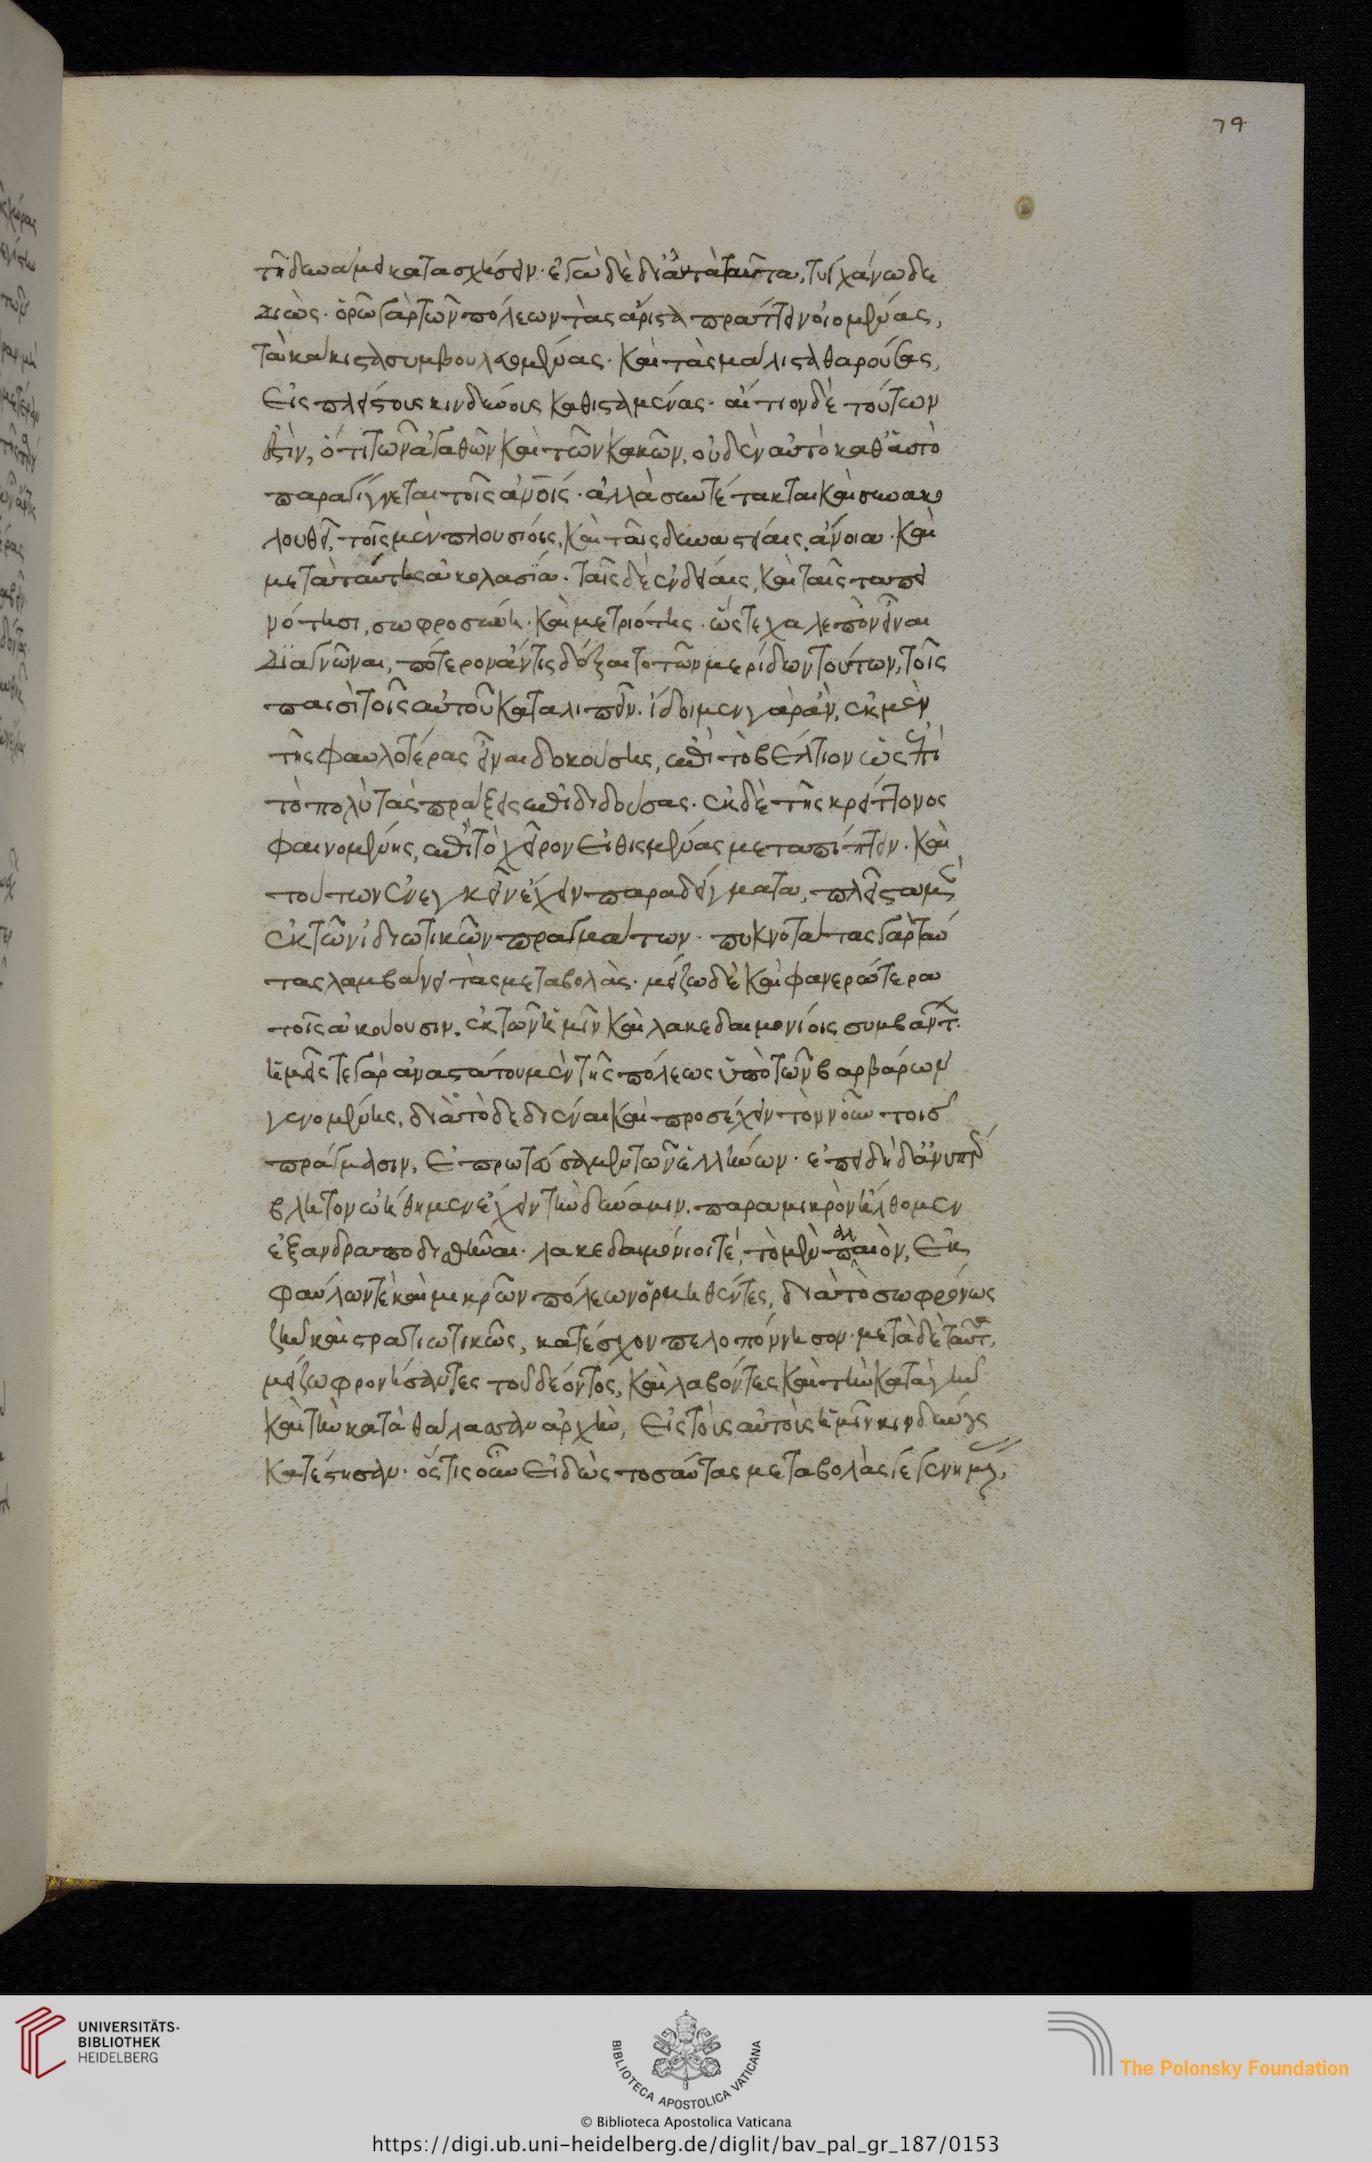 79
τῆ δυνάμει κατασχήσειν· ἐγὼ δὲ δι' αὐτὰ ταῦτα, τυγχάνω δε
διώς· ὁρῶ γὰρ τῶν πόλεων τὰς ἄριστα πράττειν οἰομένας,
τὰ κάκιστα συμβουλευομένας· καὶ τὰς μάλιστα θαρούσας,
εἰς πλείστους κινδύνους καθισταμένας· αἴτιον δὲ τούτων
ἐστὶν, ὅτι τῶν ἀγαθῶν καὶ τῶν κακῶν, οὐδὲν αὐτὸ καθ' αὑτὸ
παραγίγνεται τοῖς ἀνοις· ἀλλὰ συντέτακται καὶ συνακο
λουθεῖ, τοῖς μὲν πλουσίοις, καὶ ταῖς δυναστείαις, ἄνοια· καὶ
μετὰ ταύτης ἀκολασία· ταῖς δὲ ἐνδείαις, καὶ ταῖς ταπει
νότησι, σωφροσύνη· καὶ μετριότης· ὥστε χαλεπὸν εἶναι
διαγνῶναι, πότερον ἄν τις δέξαιτο τῶν μερίδων τούτων, τοῖς
παισὶ τοῖς αὐτοῦ καταλιπεῖν· ἴδοιμεν γὰρ ἂν, ἐκ μὲν
τῆς φαυλοτέρας εἶναι δοκούσης, ἐπὶ τὸ βέλτιον ὡς ἐπὶ
τὸ πολὺ τὰς πράξεις ἐπιδιδούσας· ἐκ δὲ τῆς κρείττονος
φαινομένης, ἐπὶ τὸ χεῖρον εἰθισμένας μεταπίπτειν· καὶ
τούτων ἐνεγκεῖν ἔχειν παραδείγματα, πλεῖστα μὲν
ἐκ τῶν ἰδιωτικῶν πραγμάτων· πυκνοτάτας γὰρ ταύ
τας λαμβάνει τὰς μεταβολὰς· μείζω δὲ καὶ φανερώτερα
τοῖς ἀκούουσιν, ἐκ τῶν ἡμῖν καὶ λακεδαιμονίοις συμβάντ·
ἡμεῖς τε γὰρ ἀναστάτου μὲν τῆς πόλεως ὑπὸ τῶν βαρβάρων
γενομένης, διὰ τὸ δεδιέναι καὶ προσέχειν τὸν νοῦν τοισ
πράγμασιν, ἐπρωτεύσαμεν τῶν ἑλλήνων· ἐπειδὴ δ' ἀνυπερ
βλητον ὠήθημεν ἔχειν τὴν δύναμιν, παρὰ μικρὸν ἤλθομεν
ἐξανδραποδισθῆναι· λακεδαιμόνιοί τε, τὸ μὲν παλαιὸν, ἐκ
φαύλων τὲ καὶ μικρῶν πόλεων ὁρμηθέντες, διὰ τὸ σωφρόνως
ζῆν καὶ στρατιωτικῶς, κατέσχον πελοπόννησον· μετὰ δὲ ταῦτα,
μείζω φρονήσαντες τοῦ δέοντος, καὶ λαβόντες καὶ τὴν κατὰ γῆν
καὶ τὴν κατὰ θάλασσαν ἀρχὴν, εἰς τοὺς αὐτοὺς ἡμῖν κινδύνους
κατέστησαν· ὅστις οὖν εἰδὼς τοσαύτας μεταβολὰς γεγενημένας,
UNIVERSITÄTS-
BIBLIOTHEK
HEIDELBERG
BIBLIOTECA APOSTOLICA VATICANA
The Polonsky Foundation
© Biblioteca Apostolica Vaticana
https://digi.ub.uni-heidelberg.de/diglit/bav_pal_gr_187/0153